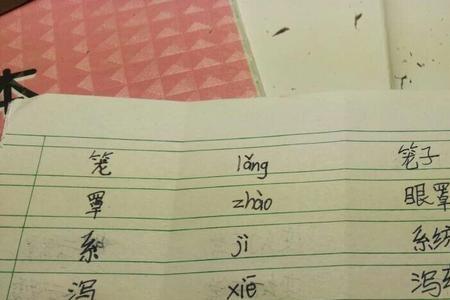 本
笼 lǎng 笼子
罩 zhào 眼罩
系 jì 系统
泻 xiē